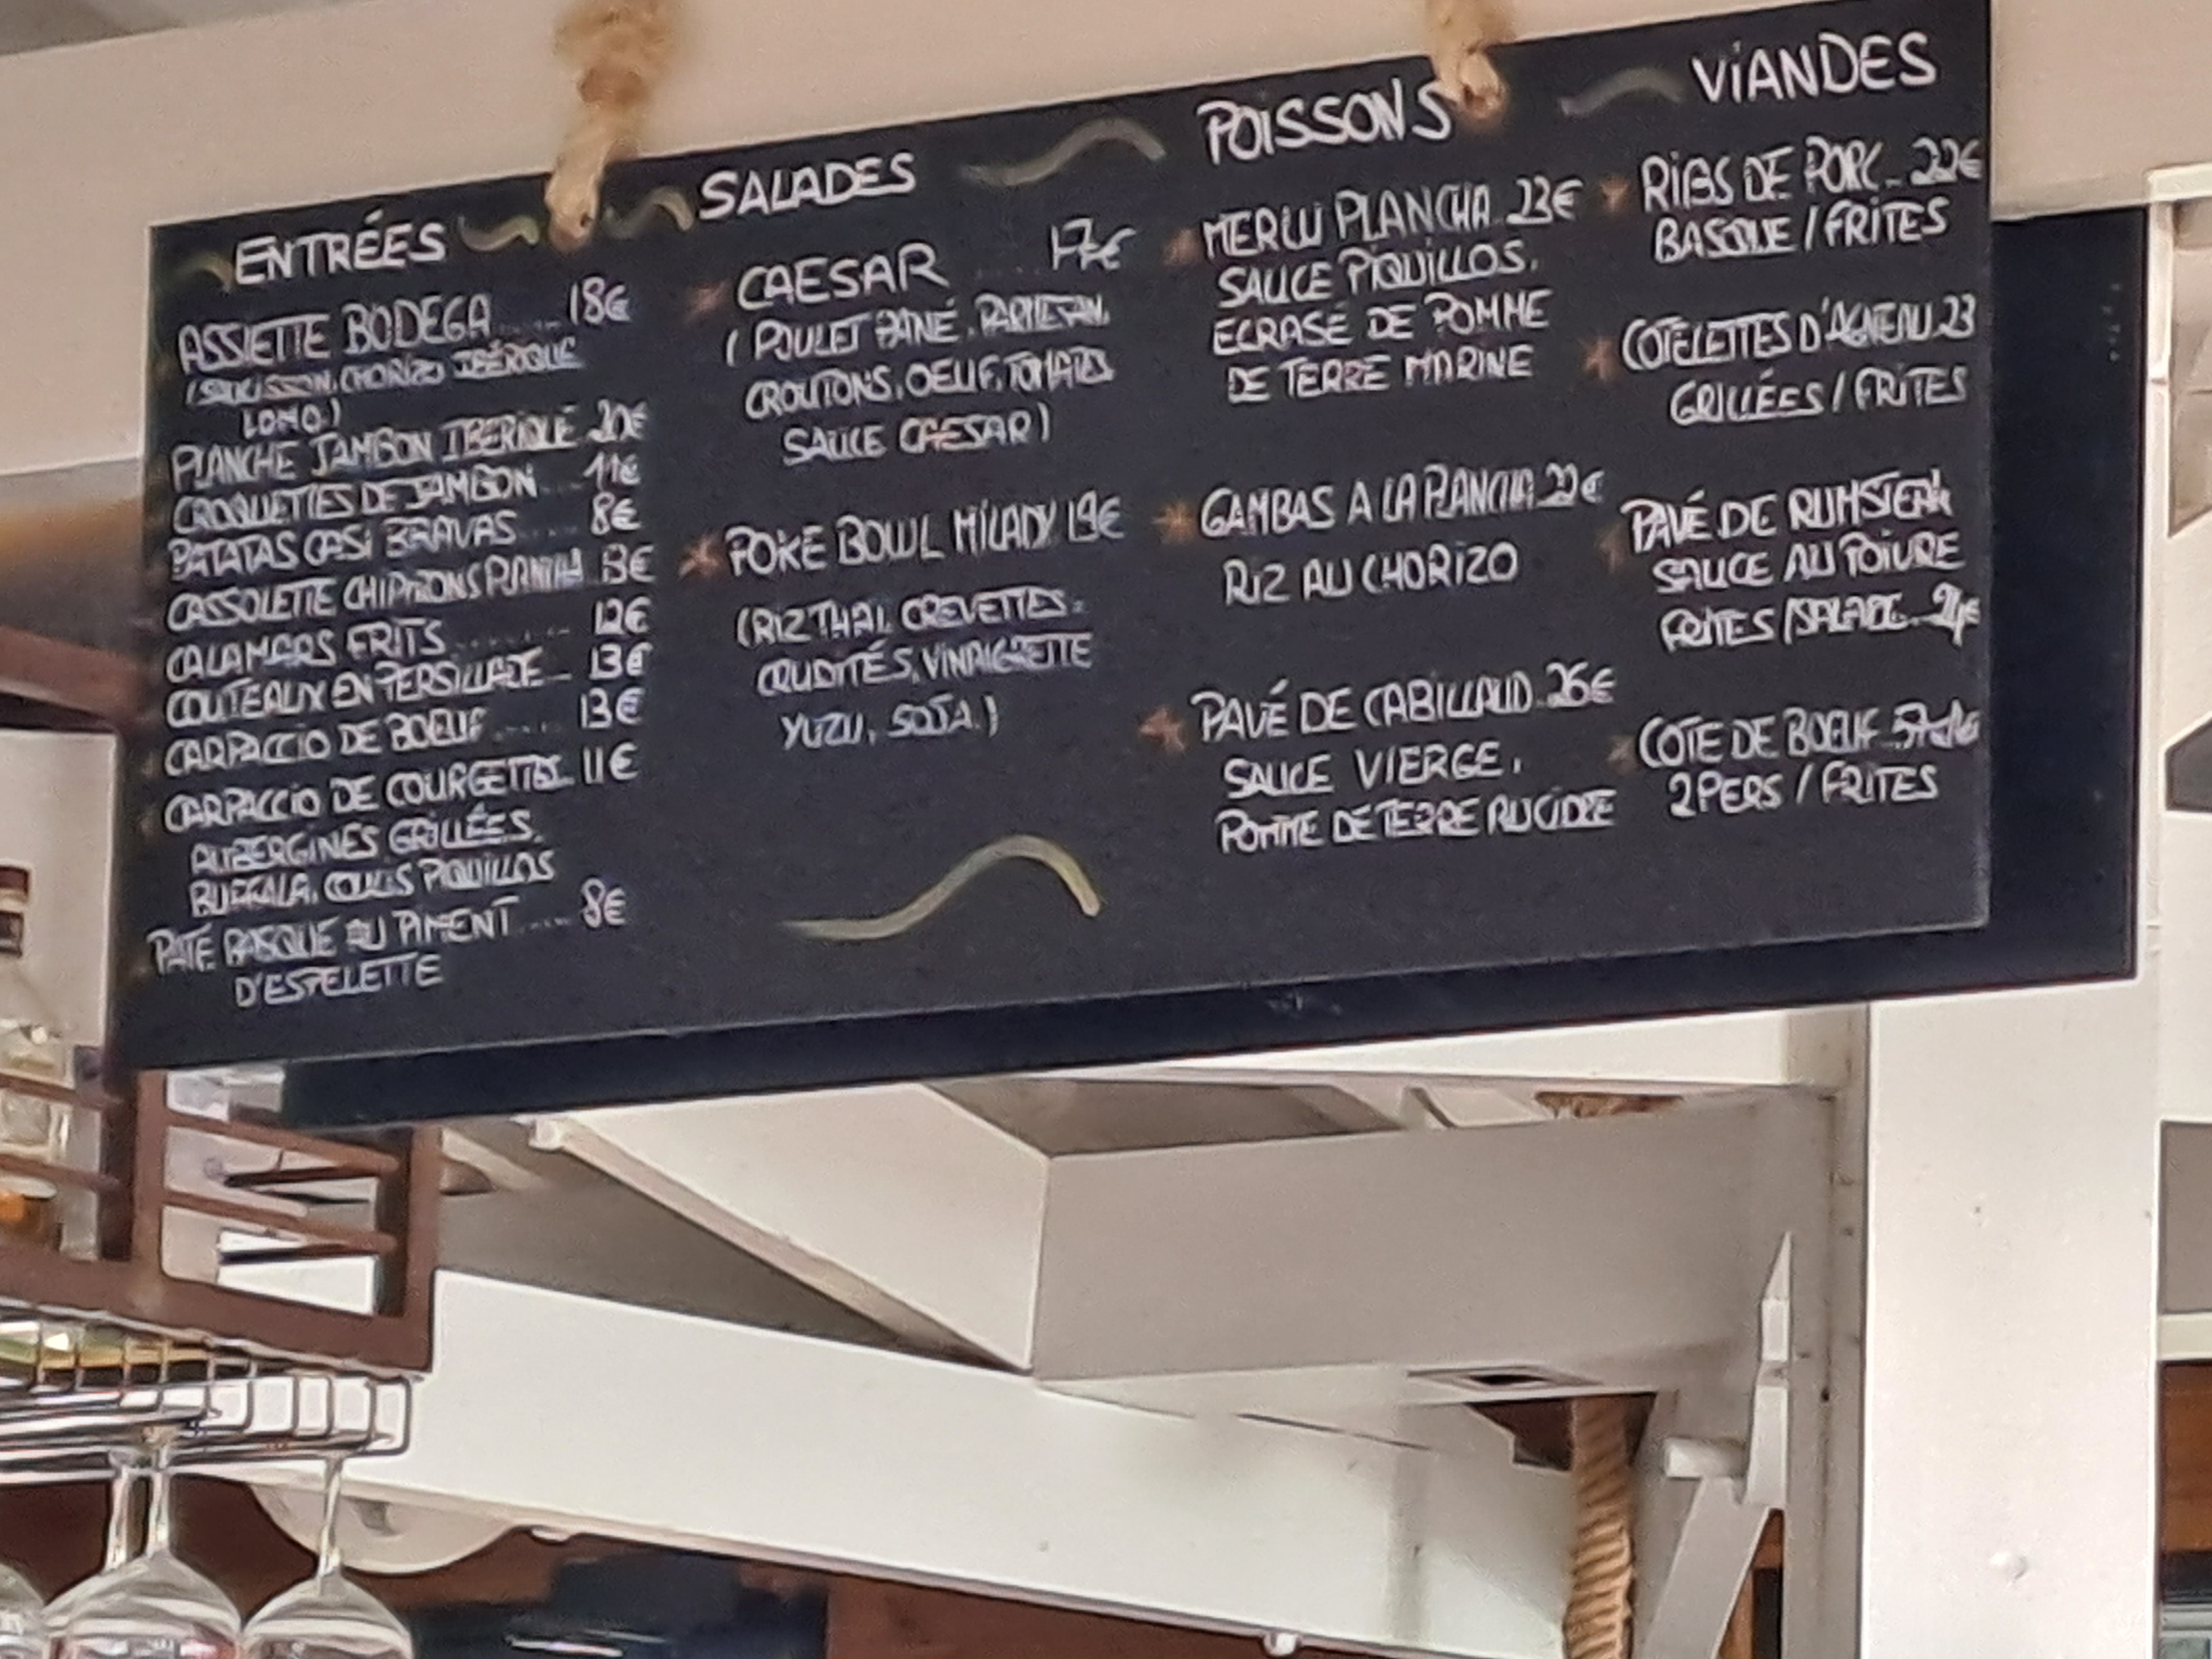 ENTRÉES
ASSIETTE BODEGA ..... 18€
(SAUCISSON, CHORIZO IBÉRIQUE
LOMO.)
PLANCHE JAMBON IBERIQUE 20€
CROQUETTES DE JAMBON ... 11€
PATATAS CASI BRAVAS .... 8€
CASSOLETTE CHIPIRONS PLANCHA 13€
CALAMARS FRITS ....... 12€
COUTEAUX EN PERSILLADE .. 13€
CARPACCIO DE BOEUF ..... 13€
CARPACCIO DE COURGETTES.. 11€
AUBERGINES GRILLÉES.
BUFFALA, COULIS PIQUILLOS
PATÉ BASQUE AU PIMENT .... 8€
D'ESPELETTE
SALADES
CAESAR ..... 17€
(POULET PANÉ, PARMESAN,
CROUTONS, OEUF, TOMATES
SAUCE CAESAR)
POKE BOWL MILADY 19€
(RIZ THAI, CREVETTES,
CRUDITÉS, VINAIGRETTE
YUZU, SOJA.)
POISSONS
MERLU PLANCHA .. 23€
SAUCE PIQUILLOS.
ECRASÉ DE POMME
DE TERRE MARINE
GAMBAS A LA PLANCHA 22€
RIZ AU CHORIZO
PAVÉ DE CABILLAUD .. 26€
SAUCE VIERGE,
POMME DE TERRE
VIANDES
RIBS DE PORC .. 22€
BASQUE / FRITES
COTELETTES D'AGNEAU 23
GRILLÉES / FRITES
PAVÉ DE RUMSTEAK
SAUCE AU POIVRE
FRITES / SALADE ... 24€
COTE DE BOEUF
2 PERS / FRITES